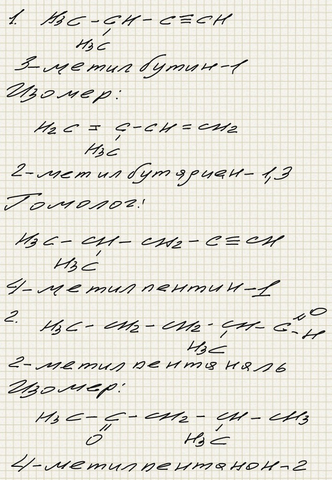 1. H₃C – CH – C≡CH
H₃C
3-метилбутин-1
Изомер:
H₂C = C – CH = CH₂
H₃C
2-метилбутадиан-1,3
Гомолог:
H₃C – CH – CH₂ – C≡CH
H₃C
4-метилпентин-1
2. H₃C – CH₂ – CH₂ – CH – C=O –H
H₃C
2-метилпентаналь
Изомер:
H₃C – C – CH₂ – CH – CH₃
O H₃C
4-метилпентанон-2